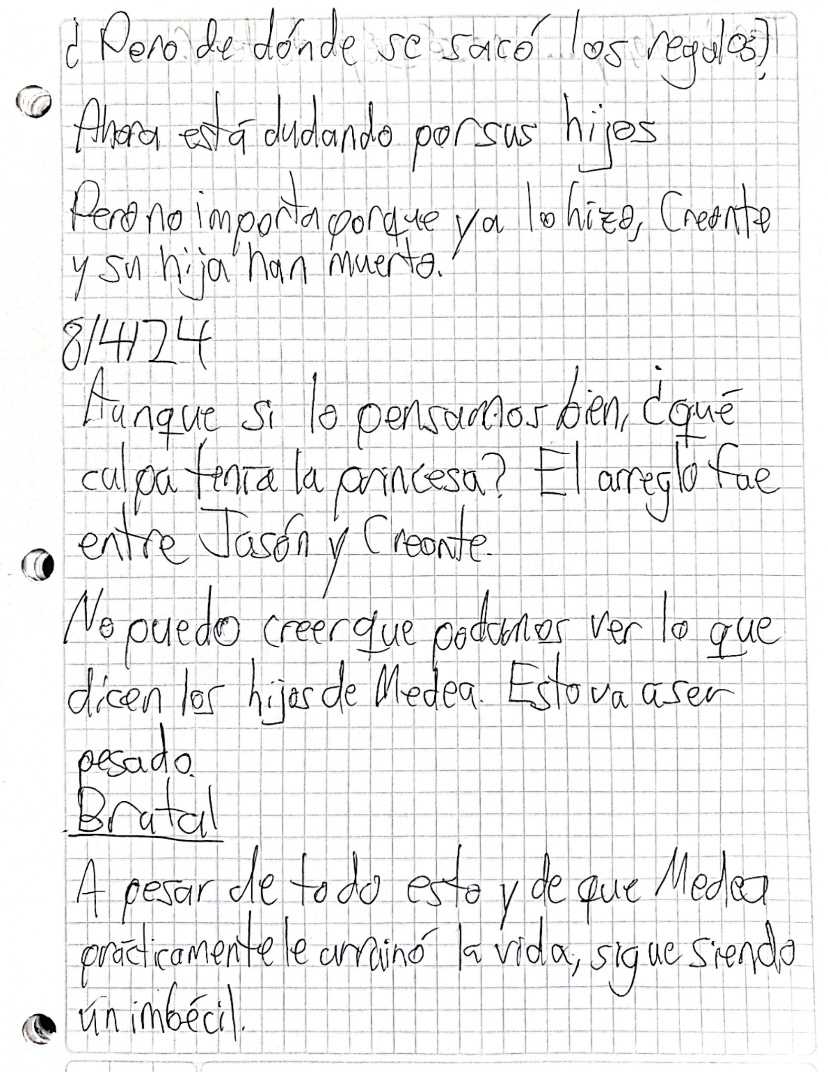 ¿Pero de dónde se sacó los regalos?
Ahora está dudando por sus hijos
Pero no importa porque ya lo hizo, Creonte
y su hija han muerto.
8/4/24
Aunque si lo pensamos bien, ¿qué
culpa tenía la princesa? El arreglo fue
entre Jasón y Creonte.
No puedo creer que podamos ver lo que
dicen los hijos de Medea. Esto va a ser
pesado.
Brutal
A pesar de todo esto y de que Medea
prácticamente le arruinó la vida, sigue siendo
un imbécil.